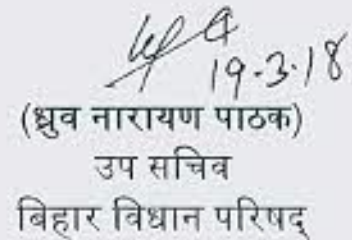 19.3.18
(ध्रुव नारायण पाठक)
उप सचिव
बिहार विधान परिषद्